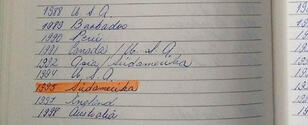 1988 U.S.A.
1989 Barbados
1990 Perú
1991 Canada / U.S.A
1992 Asia / Südamerika
1994 U.S.A.
1995 Südamerika
1997 England
1998 Australia